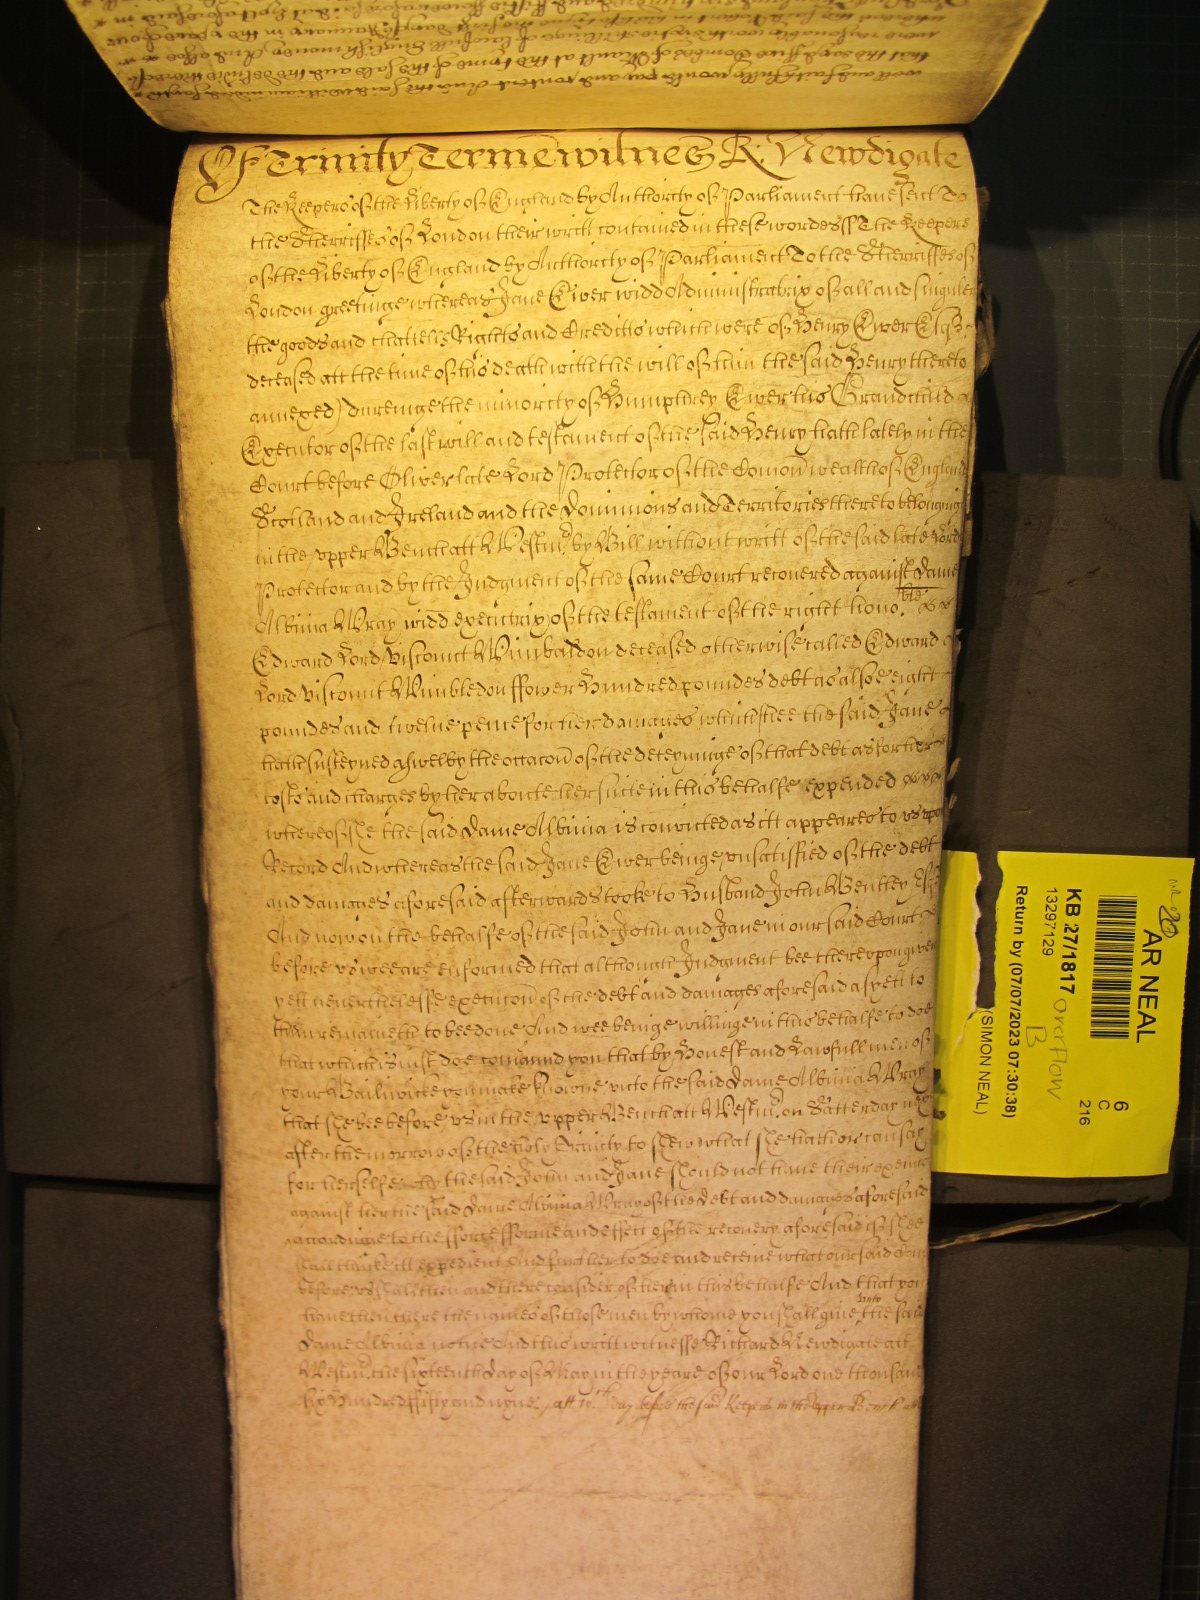 Of Trinity Terme witnes R: Newdigate
The Keepers of the Liberty of England by Authority of Parliament have sent To
the Sherriffes of London their writt contained in these wordes ss The Keepers
of the Liberty of England by Authority of Parliament To the Sherriffes of
London greetinge whereas Jane Ewer widd Administratrix of all and singuler
the goods and chattells Rights and Creditts which were of Henry Ewer Esqr
deceased att the time of his death with the will of him the said Henry thereto
annexed) dureinge the minority of Humphrey Ewer his Grandchild
Executor of the last will and testament of the said Henry hath lately in the
Court before Oliver late Lord Protector of the Comon wealth of England
Scotland and Ireland and the Dominions and Territories thereto belonging
in the upper Bench att Westmr by Bill without writt of the said late Lord
Protector and by the Judgment of the same Court recovered against Dame
Albinia Wray widd executrix of the testament of the right hono:ble
Edward Lord Viscount Wimbaldon deceased otherwise called Edward
Lord Viscount Wimbledon ffower Hundred poundes debt as alsoe eight
poundes and twelve pence for her damages which shee the said Jane
hath susteyned aswell by the occacon of the deteyninge of that debt as for her
costs and charges by her aboute her suite in this behalfe expended
whereof she the said Dame Albinia is convicted as itt appeares to us upon
Record And whereas the said Jane Ewer beinge unsatisfied of the debt
and damages aforesaid afterwards tooke to Husband John Wentley Esqr
And now on the behalfe of the said John and Jane in our said Court
before us wee are enformed that although Judgment bee thereupon given
yett neverthelesse execucon of the debt and damages aforesaid as yett to
them remaineth to bee done And wee beinge willinge in this behalfe to doe
that which is iust doe comaund you that by Honest and Lawfull men of
your Bailiwicke you make knowne unto the said Dame Albinia Wray
that she bee before us in the upper Bench att Westmr on Satterday next
after the morrow of the holy Trinity to shew what she hath or can say
for herselfe why the said John and Jane should not have their execucon
against her the said Dame Albinia Wray of the Debt and damages aforesaid
accordinge to the fforce fforme and effect of the recovery aforesaid if shee
shall thinke itt expedient And further to doe and receive what our said Court
before us shall then and there consider of her in this behalfe And that you
have then there the names of those men by whome you shall give unto the said
Dame Albinia notice And this writt witnesse Richard Newdigate att
Westmr the sixteenth day of May in the yeare of our Lord one thousand
six Hundred fifty and nyne att wch day before the said Keepers in the Upper Bench
AR NEAL
6
C
216
KB 27/1817
Overflow
B
13297129
(SIMON NEAL)
Return by (07/07/2023 07:30:38)